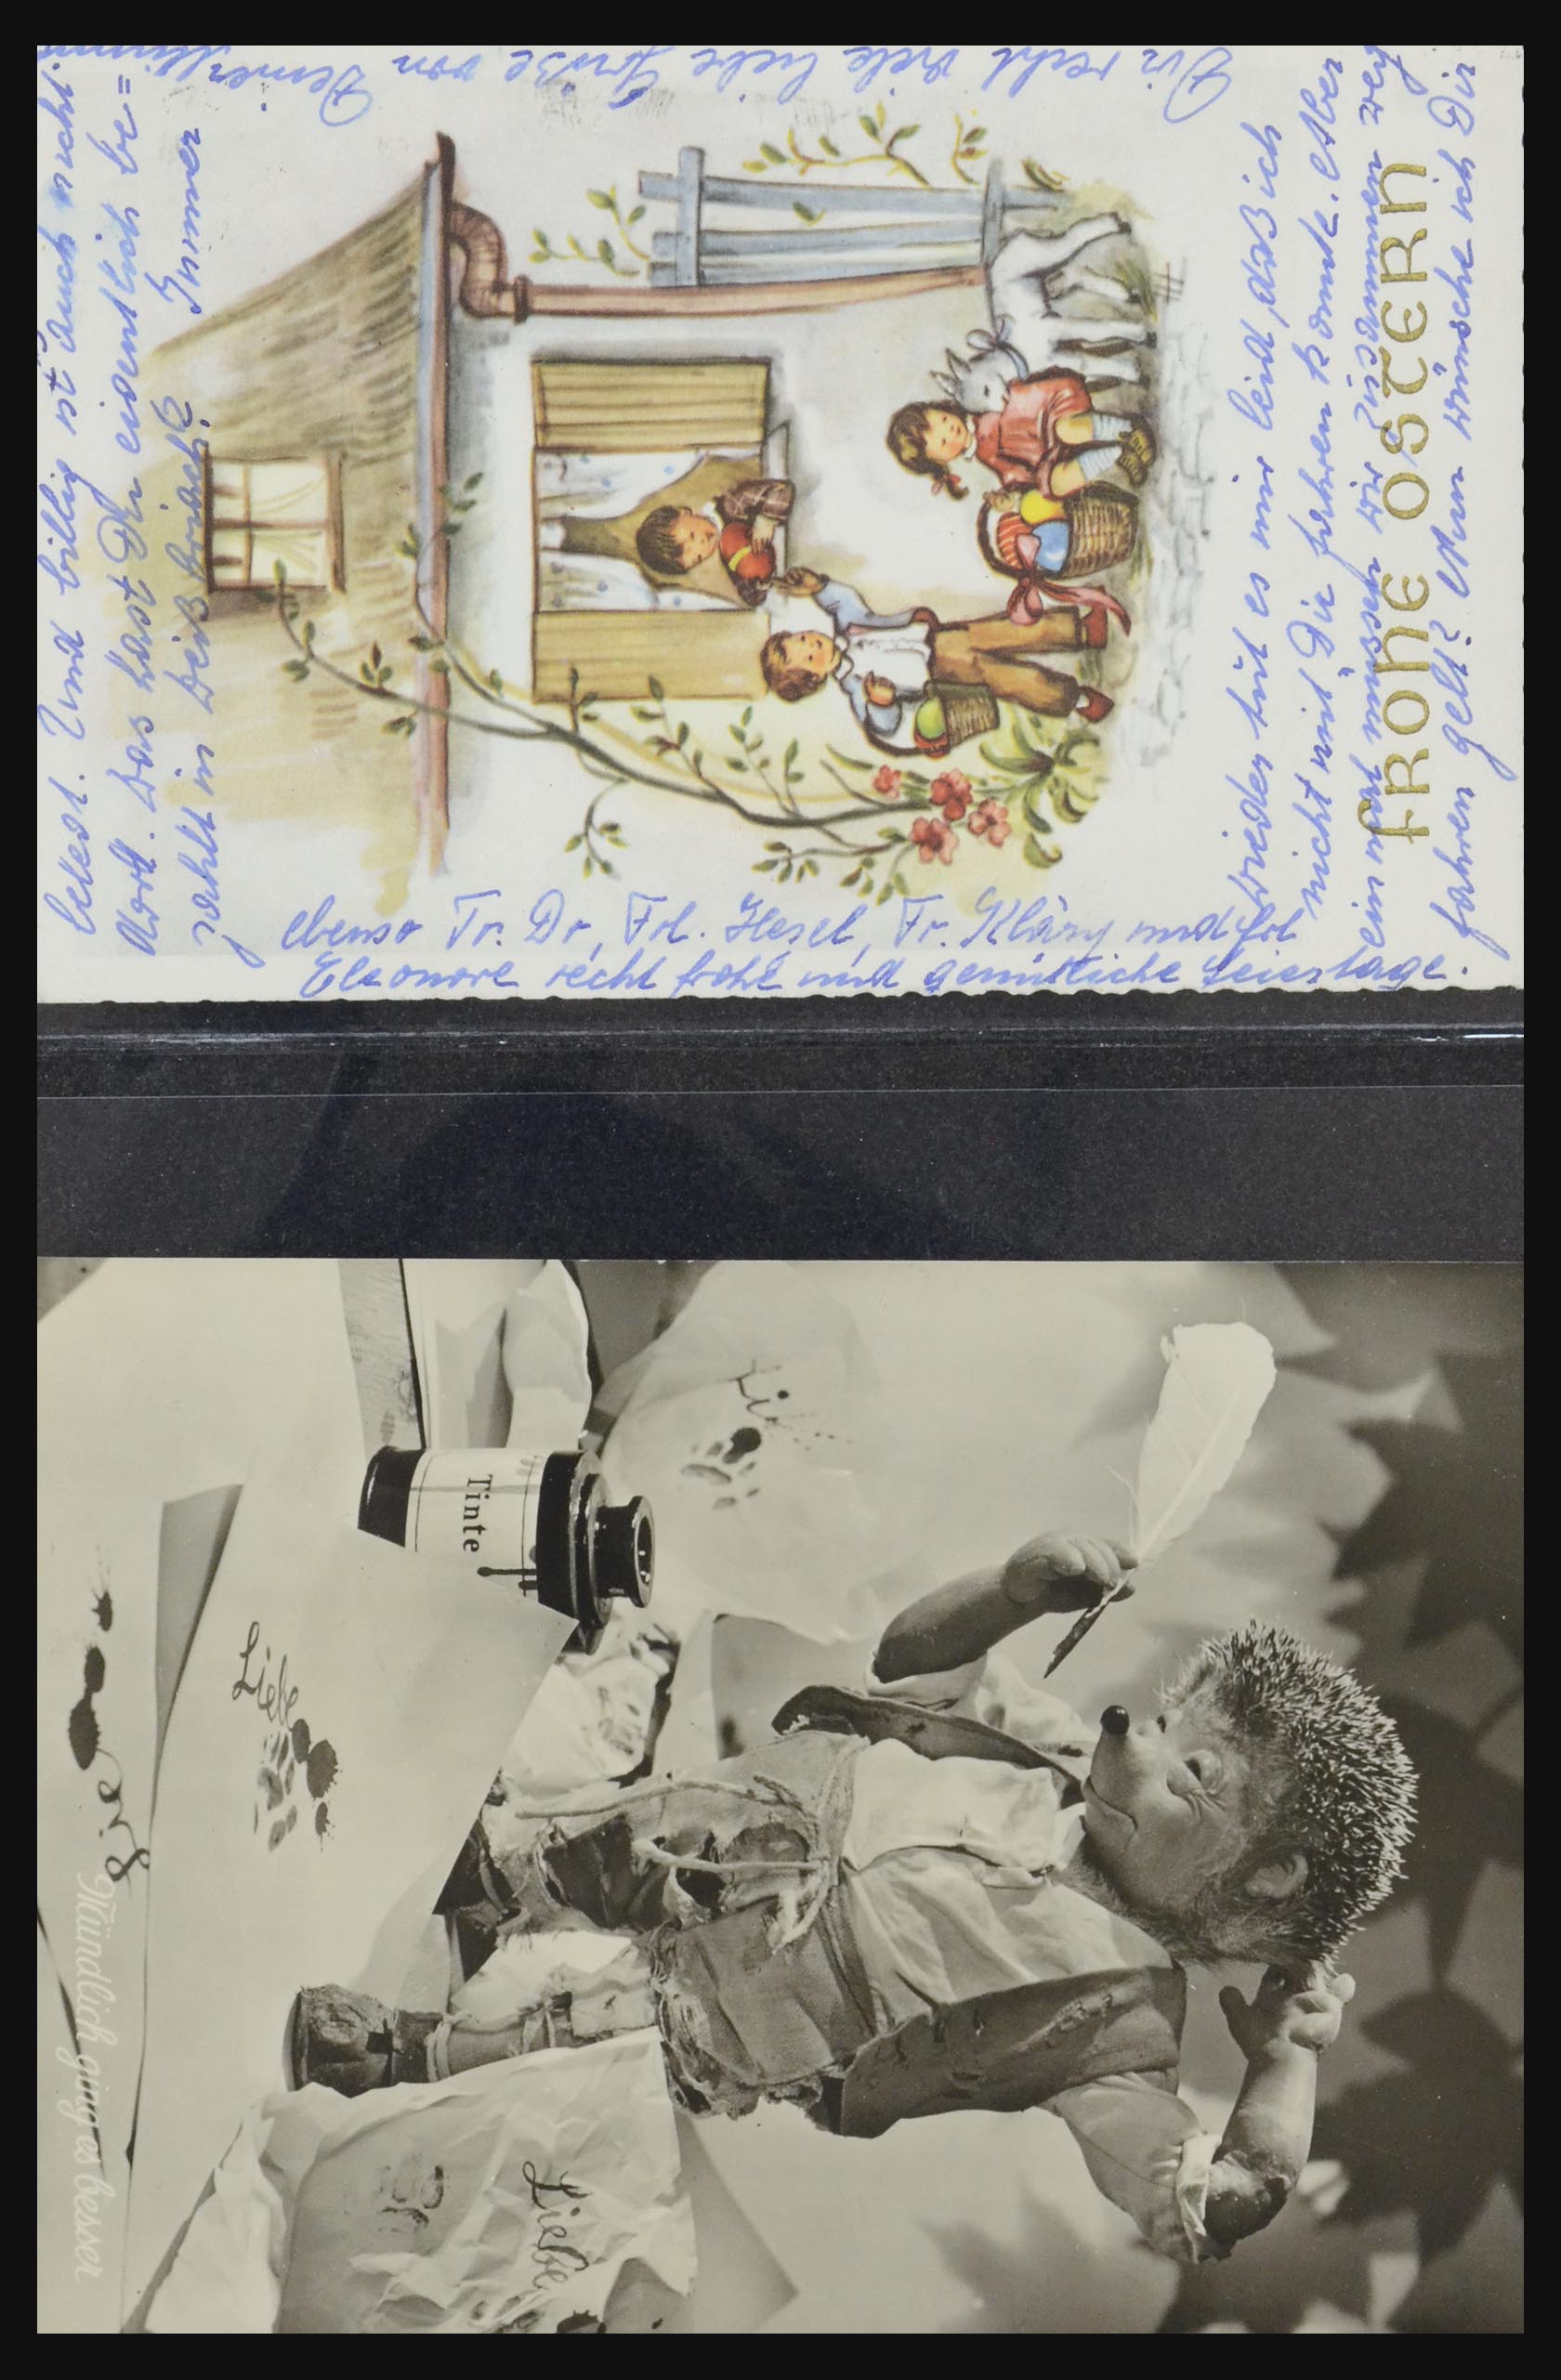 belegt. Und billig ist auch nicht
dort. Was hast Du eigentlich be=
zahlt in Weißbriach? Immer
Dir recht viele liebe Grüße von Deiner
wieder tut es mir leid, daß ich
nicht mit Dir fahren konnte. Aber
einmal müssen wir zusammen weg
FROHE OSTERN
fahren gelt? Nun wünsche ich Dir
ebenso Fr. Dr, Frl. Hesel, Fr. Kläry und Frl
Eleonore recht frohe und gemütliche Feiertage.
Tinte
Liebe
Liebe
Mündlich ging es besser